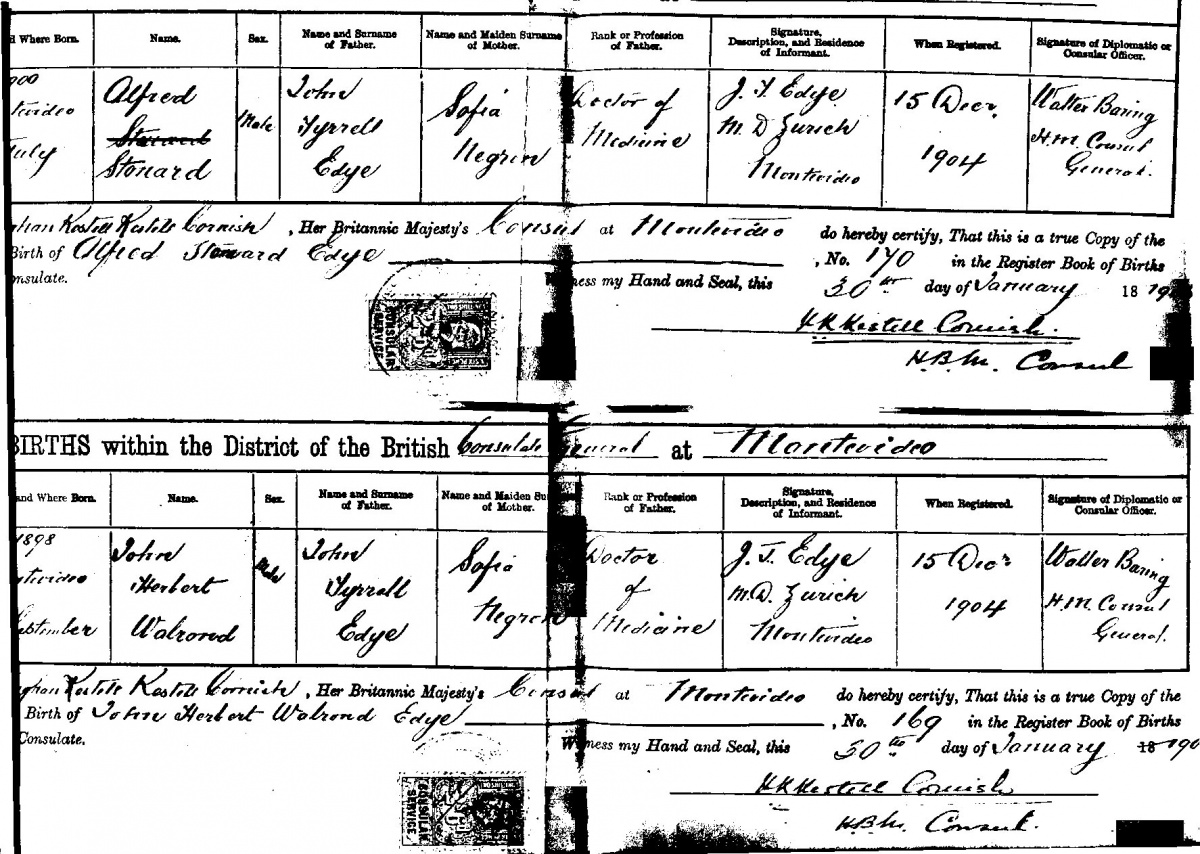 d Where Born. Name. Sex. Name and Surname of Father. Name and Maiden Surname of Mother. Rank or Profession of Father. Signature, Description, and Residence of Informant. When Registered. Signature of Diplomatic or Consular Officer.
900 Alfred John Sofia Doctor of J. T. Edye 15 Decr. Walter Baring
tevideo Stonard Male Tyrrell Negron Medicine M. D. Zurich 1904 H.M. Consul
July Stonard Edye Montevideo General.
ghan Kestell Kestell Cornish, Her Britannic Majesty's Consul at Montevideo do hereby certify, That this is a true Copy of the
Birth of Alfred Stonard Edye, No. 170 in the Register Book of Births
onsulate. Witness my Hand and Seal, this 30th day of January 18 19
V. K. Kestell Cornish.
H.B.M. Consul
CONSULAR SERVICE
BIRTHS within the District of the British Consulate General at Montevideo
and Where Born. Name. Sex. Name and Surname of Father. Name and Maiden Surname of Mother. Rank or Profession of Father. Signature, Description, and Residence of Informant. When Registered. Signature of Diplomatic or Consular Officer.
1898 John Male John Sofia Doctor J. T. Edye 15 Decr Walter Baring
ntevideo Herbert Tyrrell Negron of M.D. Zurich 1904 H.M. Consul
September Walrond Edye Medicine Montevideo General.
ghan Kestell Kestell Cornish, Her Britannic Majesty's Consul at Montevideo do hereby certify, That this is a true Copy of the
Birth of John Herbert Walrond Edye, No. 169 in the Register Book of Births
Consulate. Witness my Hand and Seal, this 30th day of January 18 190
V. K. Kestell Cornish
H.B.M. Consul.
CONSULAR SERVICE